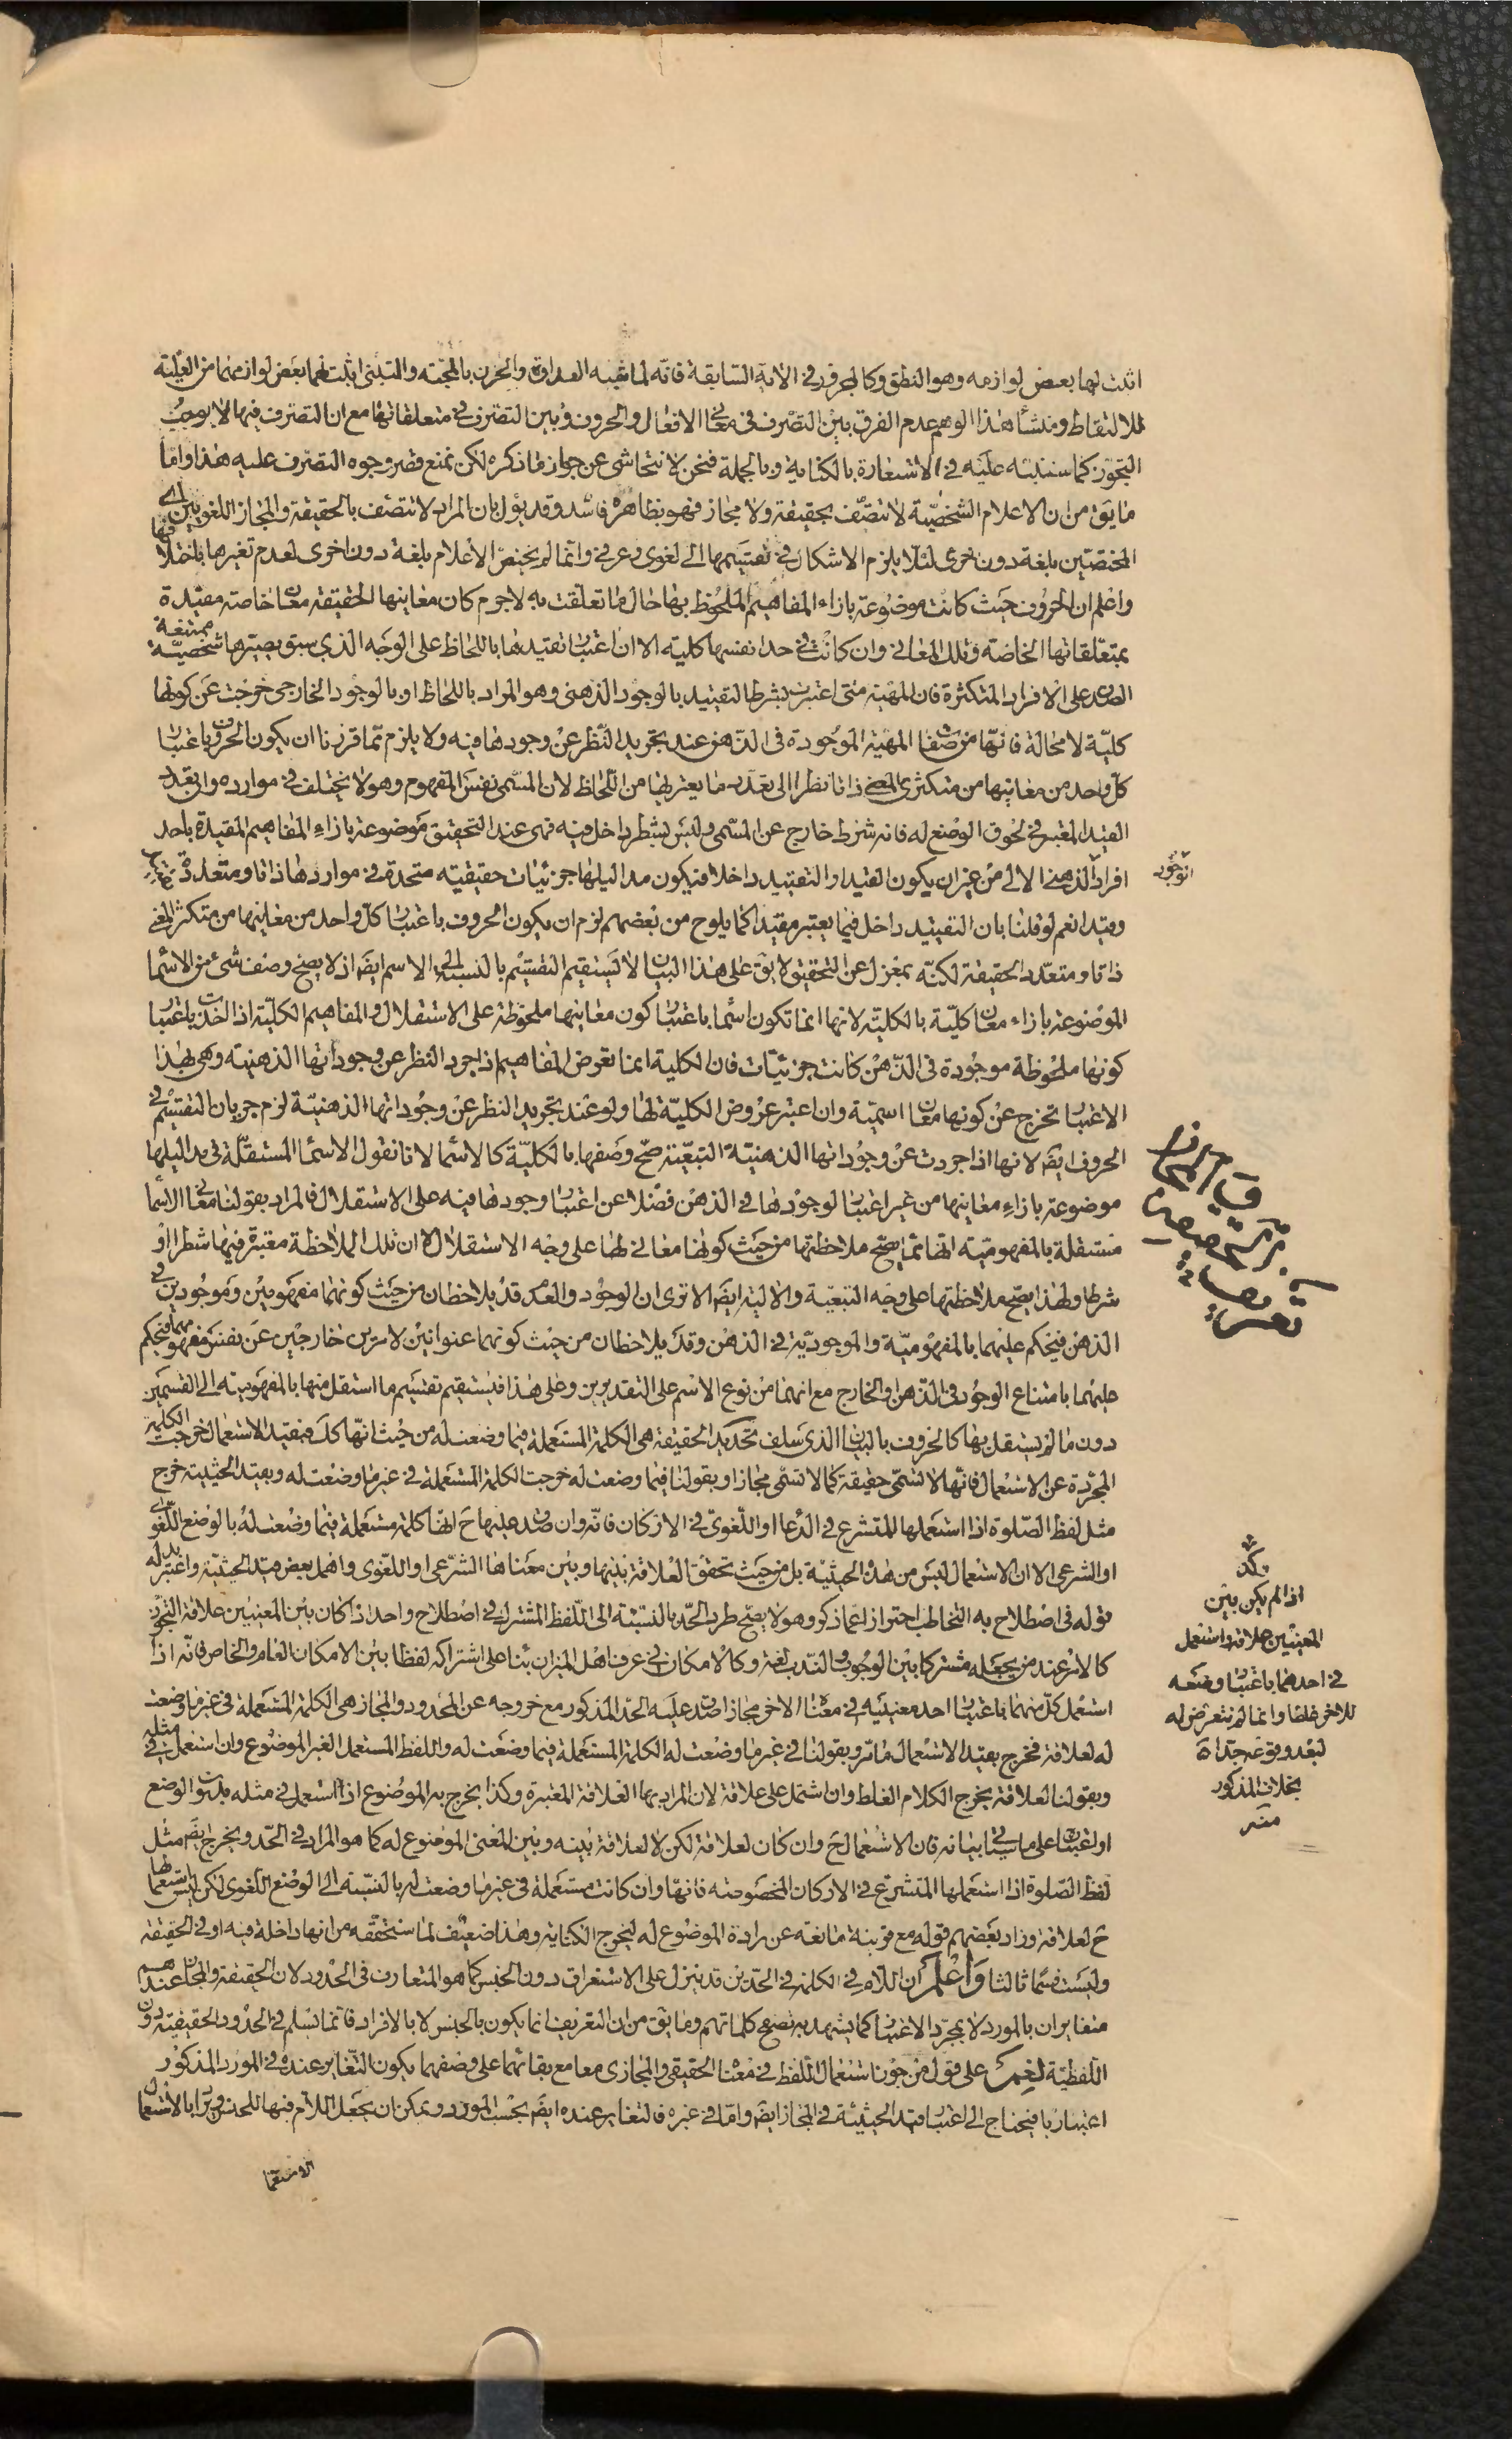 اثبت لها بعض لوازمه وهو النطق وكالحرف في الآية السابقة فانه لما شبه العداوة والحزن بالمحبة والتبنى اثبت لهما بعض لوازمهما من العلية
للالتقاط ومنشأ هذا الوهم عدم الفرق بين التصرف في معانى الافعال والحروف وبين التصرف في متعلقاتها مع ان التصرف فيها لا يوجب
التجوز كما سننبه عليه في الاستعارة بالكناية وبالجملة فنحن لا نتحاشى عن جواز ما ذكره لكن نمنع قصر وجوه التصرف عليه هذا واما
ما يق من ان الاعلام الشخصية لا تتصف بحقيقة ولا مجاز فهو بظاهره فاسد وقد يؤل بان المراد لا تتصف بالحقيقة والمجاز اللغويين اى
المختصتين بلغة دون اخرى لئلا يلزم الاشكال في تقسيمها الى لغوى وعرفي وانما لم يختص الاعلام بلغة دون اخرى لعدم تغيرها باختلافها
واعلم ان الحروف حيث كانت موضوعة بازاء المفاهيم الملحوظ بها حال ما تعلقت به لا جرم كان معاينها الحقيقة معان خاصة مقيدة
بمتعلقاتها الخاصة وتلك المعانى وان كانت في حد انفسها كلية الا ان اعتبار تقيدها باللحاظ على الوجه الذي سبق يصيرها شخصية ممتنعة
الصدق على الافراد المتكثرة فان المهية متى اعتبرت بشرط التقييد بالوجود الذهنى وهو المراد باللحاظ او بالوجود الخارجى خرجت عن كونها
كلية لا محالة فانها من صفات المهية الموجودة في الذهن عند تجريد النظر عن وجودها فيه ولا يلزم مما قررنا ان يكون الحروف باعتبار
كل واحد من معانيها من متكثرى المعنى ذاتا نظرا الى تعدد ما يعتريها من اللحاظ لان المسمى نفس المفهوم وهو لا يختلف في موارده وان تعدد
القيد المعتبر في لحوق الوضع له فانه شرط خارج عن المسمى وليس بشطر داخل فيه فهى عند التحقيق موضوعة بازاء المفاهيم المقيدة باحد
افراد الوجود الذهنى الآلى من غير ان يكون القيد او التقييد داخلا فيكون مداليلها جزئيات حقيقية متحدة في مواردها ذاتا ومتعددة تقييدا
وقيدا نعم لو قلنا بان التقييد داخل فيما يعتبر مقيدا كما يلوح من بعضهم لزم ان يكون الحروف باعتبار كل واحد من معانيها من متكثر المعنى
ذاتا ومتعدد الحقيقة لكنه بمعزل عن التحقيق لا يق على هذا البيان لا يستقيم التقسيم بالنسبة الى الاسم ايضا اذ لا يصح وصف شئ من الاسماء
الموضوعة بازاء معان كلية بالكلية لانها انما تكون اسماء باعتبار كون معانيها ملحوظة على الاستقلال والمفاهيم الكلية اذا اخذت باعتبار
كونها ملحوظة موجودة في الذهن كانت جزئيات فان الكلية انما تعرض المفاهيم اذا جرد النظر عن وجوداتها الذهنية وهى بهذا
الاعتبار تخرج عن كونها معان اسمية وان اعتبر عروض الكلية لها ولو عند تجريد النظر عن وجوداتها الذهنية لزم جريان التقسيم في
الحروف ايضا لانها اذا جردت عن وجوداتها الذهنية التبعية صح وصفها بالكلية كالاسماء لانا نقول الاسماء المستقلة في مداليلها
موضوعة بازاء معانيها من غير اعتبار لوجودها في الذهن فضلا عن اعتبار وجودها فيه على الاستقلال فالمراد بقولنا معانى الاسماء
مستقلة بالمفهومية انها مما يصح ملاحظتها من حيث كونها معانى لها على وجه الاستقلال لا ان تلك الملاحظة معتبرة فيها شطرا او
شرطا ولهذا يصح ملاحظتها على وجه التبعية والآلية ايضا الا ترى ان الوجود والعدم قد يلاحظان من حيث كونهما مفهومين وموجودين في
الذهن فيحكم عليهما بالمفهومية والموجودية في الذهن وقد يلاحظان من حيث كونهما عنوانين لامرين خارجين عن نفس مفهومهما فيحكم
عليهما بامتناع الوجود في الذهن والخارج مع انهما من نوع الاسم على التقديرين وعلى هذا فيستقيم تقسيم ما استقل منها بالمفهومية الى القسمين
دون ما لم يستقل بها كالحروف بالبيان الذى سلف تحديد الحقيقة هى الكلمة المستعملة فيما وضعت له من حيث انها كك فبقيد الاستعمال خرجت الكلمة
المجردة عن الاستعمال فانها لا تسمى حقيقة كما لا تسمى مجازا وبقولنا فيما وضعت له خرجت الكلمة المستعملة في غير ما وضعت له وبقيد الحيثية خرج
مثل لفظ الصلوة اذا استعملها المتشرع في الدعاء او اللغوى في الاركان فانه وان صدق عليها ح انها كلمة مستعملة فيما وضعت له بالوضع اللغوى
او الشرعى الا ان الاستعمال ليس من هذه الحيثية بل من حيث تحقق العلاقة بينها وبين معناها الشرعى او اللغوى واهمل بعض قيد الحيثية واعتبر بدله
قوله في اصطلاح به التخاطب احترازا عما ذكر وهو لا يصح طرد الحد بالنسبة الى اللفظ المشترك في اصطلاح واحد اذا كان بين المعنيين علاقة التجوز
كالامر عند من يجعله مشتركا بين الوجوب والندب لغة وكالامكان في عرف اهل الميزان بناء على اشتراكه لفظا بين الامكان العام والخاص فانه اذا
استعمل كل منهما باعتبار احد معنييه في معناه الاخر مجازا صدق عليه الحد المذكور مع خروجه عن المحدود والمجاز هى الكلمة المستعملة في غير ما وضعت
له لعلاقة فخرج بقيد الاستعمال ما مر وبقولنا في غير ما وضعت له الكلمة المستعملة فيما وضعت له واللفظ المستعمل الغير الموضوع وان استعمل في مثله
وبقولنا لعلاقة يخرج الكلام الغلط وان اشتمل على علاقة لان المراد بها العلاقة المعتبرة وكذا يخرج به الموضوع اذا استعمل في مثله بدون الوضع
او اعتبار على ما سيأتى بيانه فان الاستعمال ح وان كان لعلاقة لكن لا لعلاقة بينه وبين المعنى الموضوع له كما هو المراد في الحد ويخرج ايضا مثل
لفظ الصلوة اذا استعملها المتشرع في الاركان المخصوصة فانها وان كانت مستعملة في غير ما وضعت له بالنسبة الى الوضع اللغوى لكن ليس استعمالها
ح لعلاقة وزاد بعضهم قوله مع قرينة مانعة عن ارادة الموضوع له ليخرج الكناية وهذا ضعيف لما سنحققه من انها داخلة فيه او في الحقيقة
وليست قسما ثالثا واعلم ان اللام في الكلمة في الحدين قد ينزل على الاستغراق دون الجنس كما هو المتعارف في الحدود لان الحقيقة والمجاز عندهم
متغايران بالمورد لا بمجرد الاعتبار كما يشهد به تصفح كلماتهم وما يق من ان التعريف انما يكون بالجنس لا بالافراد فانما نسلم في الحدود الحقيقية دون
اللفظية نعم على قول من جوز استعمال اللفظ في معناه الحقيقى والمجازى معا مع بقائهما على وصفهما يكون التغاير عنده في المورد المذكور
اعتباريا فيحتاج الى اعتبار قيد الحيثية في المجاز ايضا واما في غيره فالتغاير عنده ايضا بحسب المورد ويمكن ان يجعل اللام فيها للجنس ويراد بالاستعمال
الاستعما
الوجود
وكك
اذا لم يكن بين
المعنيين علاقة واستعمل
في احدهما باعتبار وضعه
للاخر غلطا وانما لم نتعرض له
لبعد وقوعه جدا
بخلاف المذكور
منه